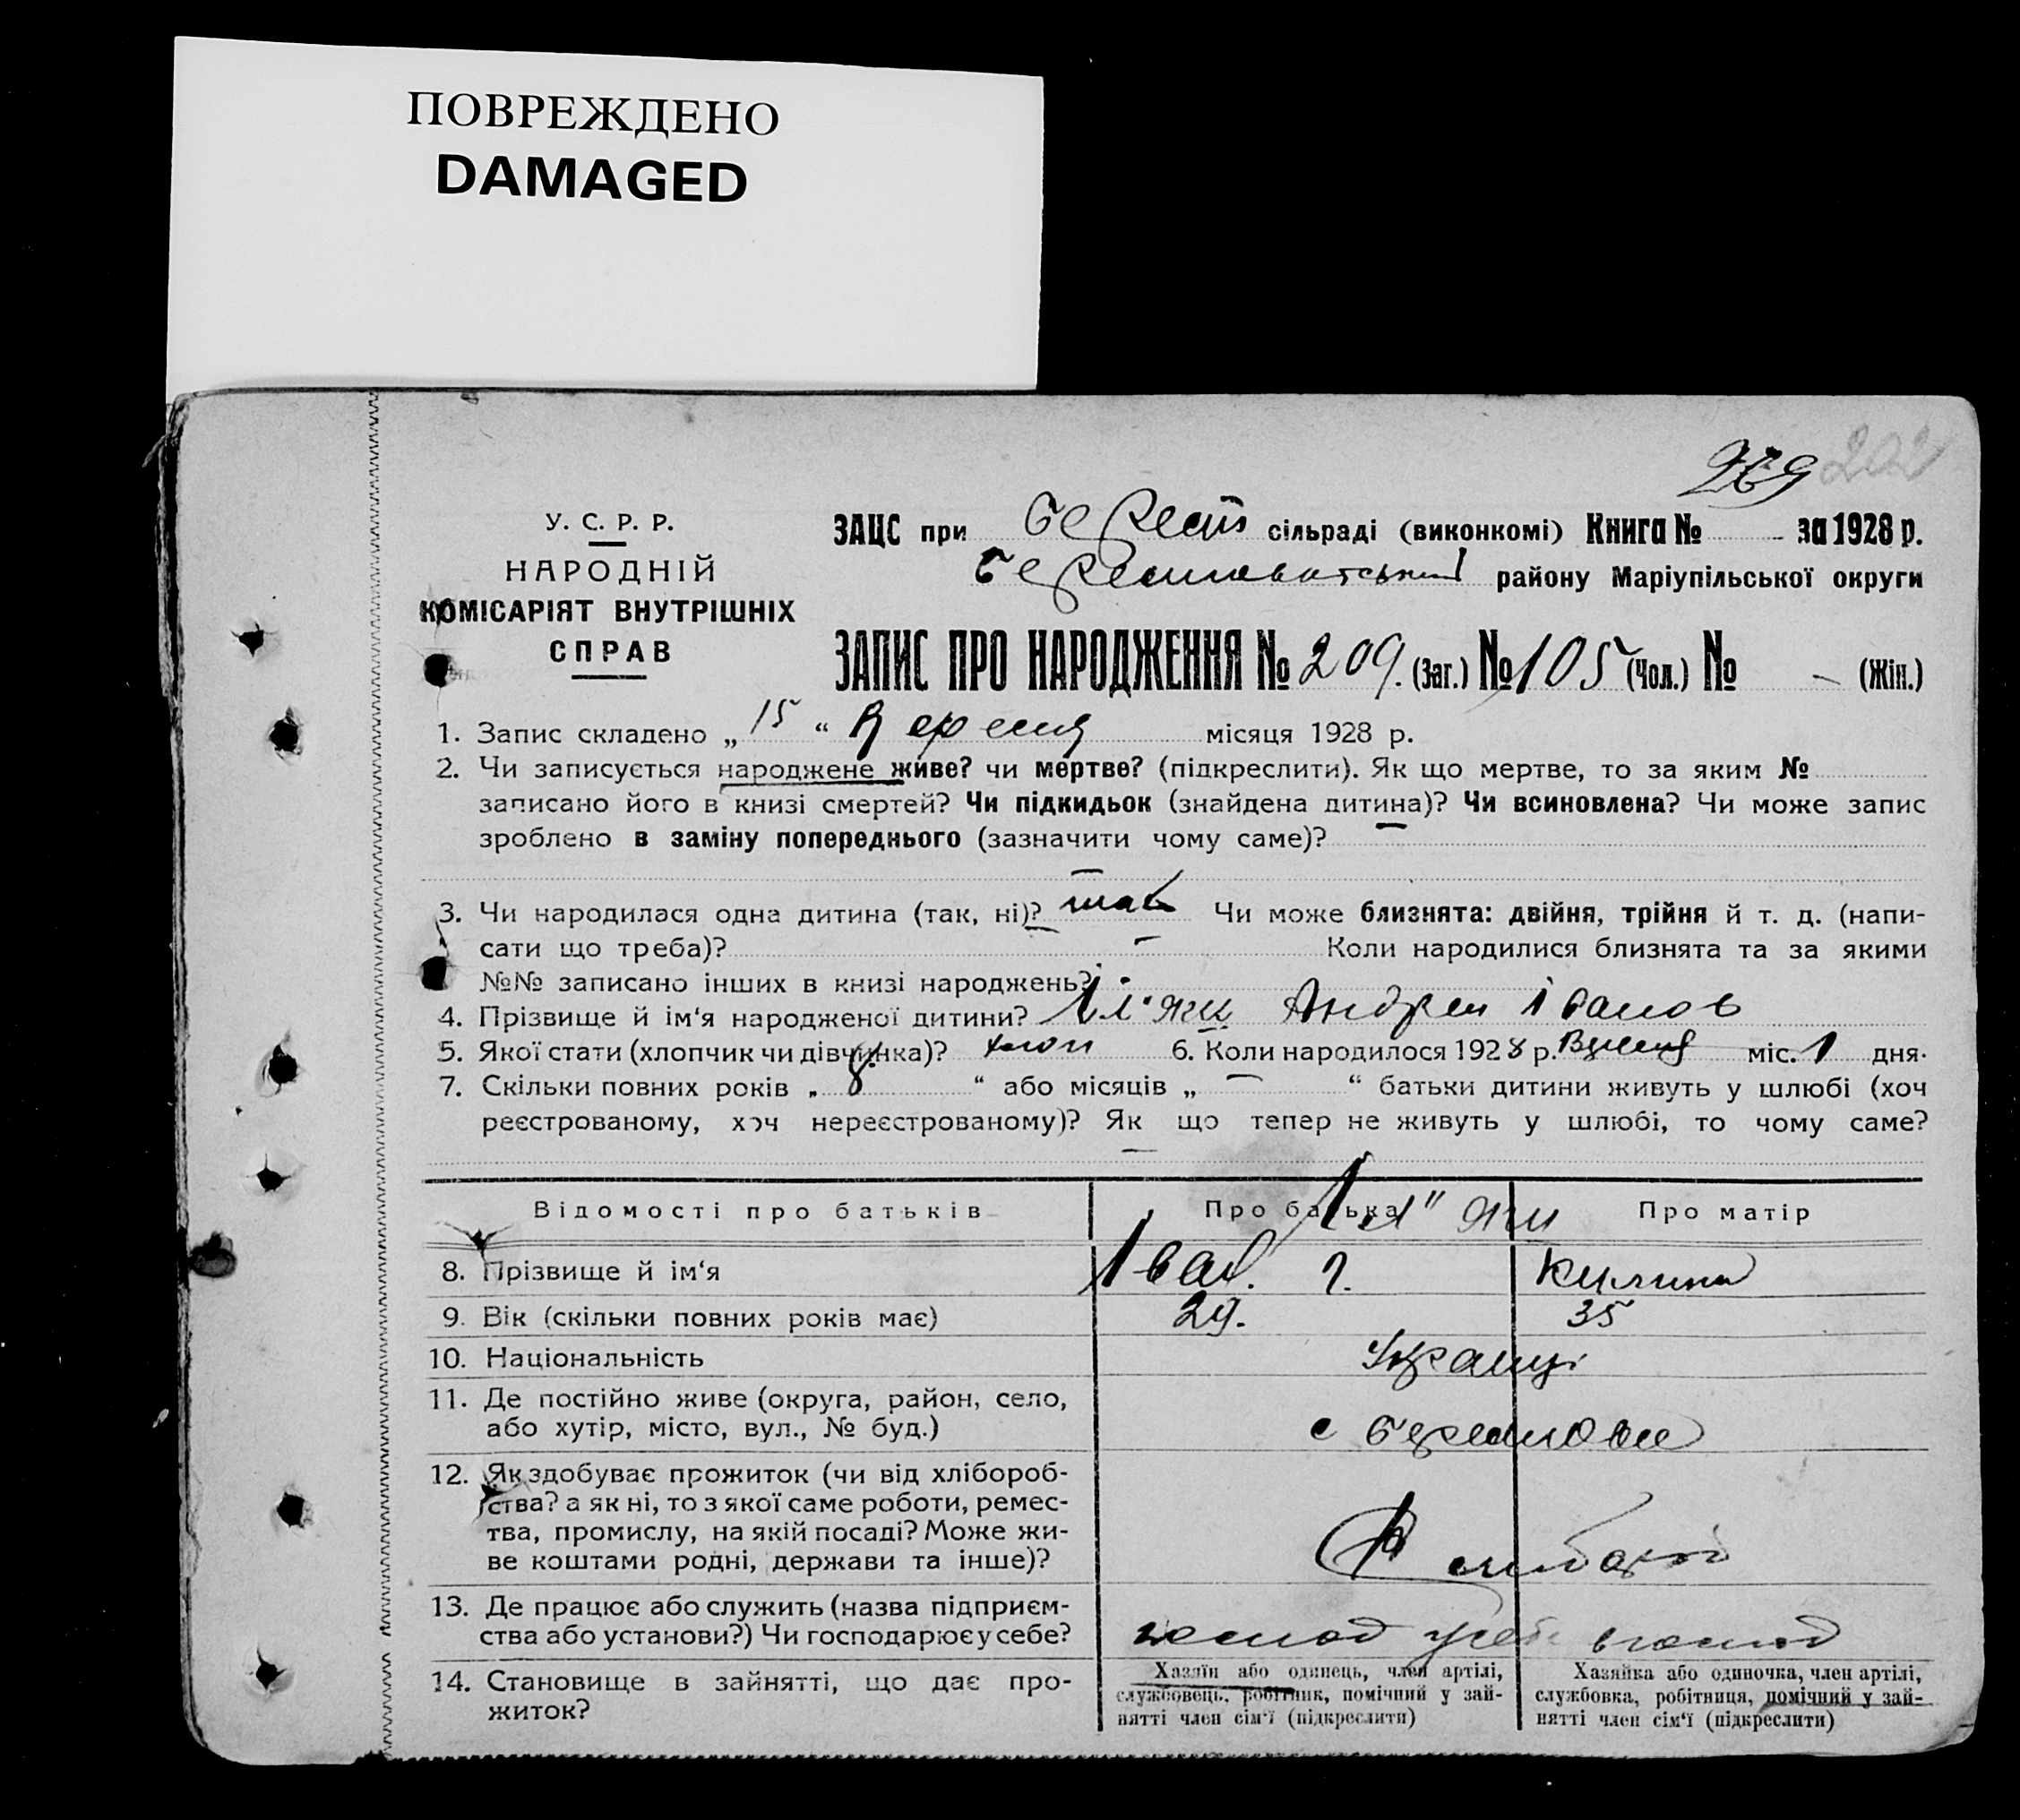 ПОВРЕЖДЕНО
DAMAGED
269 202
У. С. Р. Р.
НАРОДНІЙ
КОМІСАРІЯТ ВНУТРІШНІХ
СПРАВ
ЗАЦС при Берест сільраді (виконкомі) Книга № - за 1928 р.
району Маріупільської округи
ЗАПИС ПРО НАРОДЖЕННЯ № 209. (Заг.) № 105 (Чол.) № - (Жін.)
1. Запис складено „ 15 “ Вересня місяця 1928 р.
2. Чи записується народжене живе? чи мертве? (підкреслити). Як що мертве, то за яким №
записано його в книзі смертей? Чи підкидьок (знайдена дитина)? Чи всиновлена? Чи може запис
зроблено в заміну попереднього (зазначити чому саме)? —
3. Чи народилася одна дитина (так, ні)? так Чи може близнята: двійня, трійня й т. д. (напи-
сати що треба)? — Коли народилися близнята та за якими
№№ записано інших в книзі народжень?
4. Прізвище й ім‘я народженої дитини? Андрей Іванов
5. Якої статі (хлопчик чи дівчинка)? хлоп 6. Коли народилося 1928 р. міс. 1 дня.
7. Скільки повних років „ 8 “ або місяців „ — “ батьки дитини живуть у шлюбі (хоч
реєстрованому, хоч нереєстрованому)? Як що тепер не живуть у шлюбі, то чому саме?
—
Відомості про батьків Про батька Про матір
8. Прізвище й ім‘я Іван. Г. Килина
9. Вік (скільки повних років має) 29. 35
10. Національність Украінці
11. Де постійно живе (округа, район, село,
або хутір, місто, вул., № буд.) с
12. Як здобуває прожиток (чи від хлібороб-
ства? а як ні, то з якої саме роботи, ремес-
тва, промислу, на якій посаді? Може жи-
ве коштами родні, держави та інше)?
13. Де працює або служить (назва підприєм-
ства або установи?) Чи господарює у себе?
14. Становище в зайнятті, що дає про-
житок?
Хазяїн або одинець, член артілі,
службовець, робітник, помічний у зай-
нятті член сім‘ї (підкреслити)
Хазяйка або одиночка, член артілі,
службовка, робітниця, помічний у зай-
нятті член сім‘ї (підкреслити)